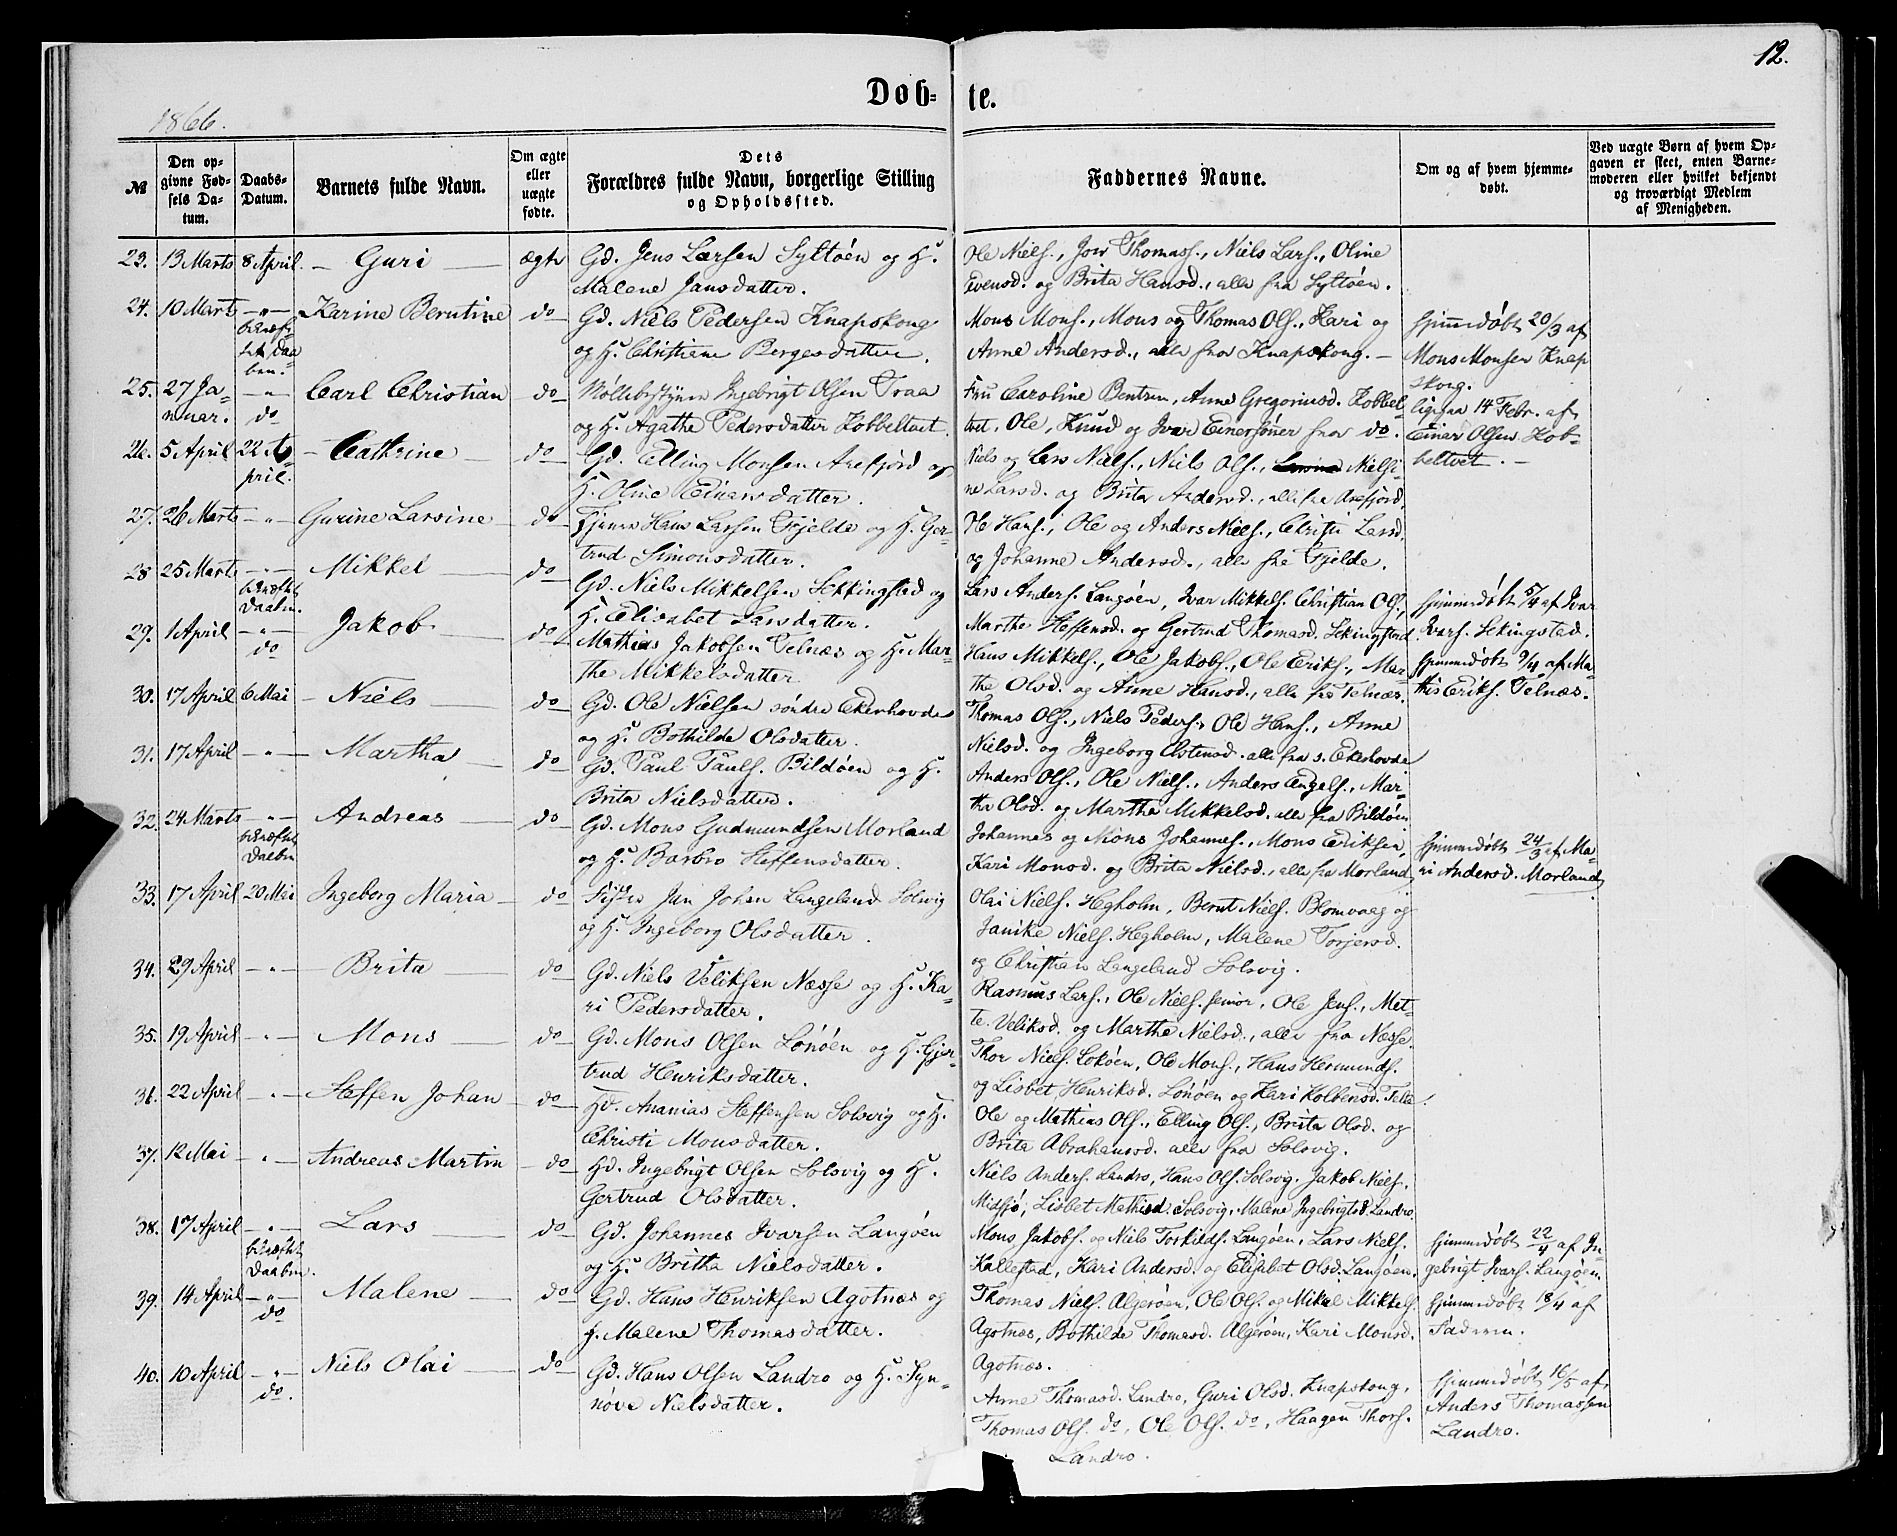 12.
Döb-te.
1866.
№
Den opgivne Fødsels Datum.
Daabs-Datum.
Barnets fulde Navn.
Om ægte eller uægte fødte.
Dets Forældres fulde Navn, borgerlige Stilling og Opholdssted.
Faddernes Navne.
Om og af hvem hjemmedøbt.
Ved uægte Børn af hvem Opgaven er skeet, enten Barnemoderen eller hvilket bekjendt og troværdigt Medlem af Menigheden.
23. 13 Marts 8 April. Guri ægte Gd. Jens Larsen Syltöen og H.
Malene Jansdatter.
Ole Niels., Joen Thomass., Niels Lars., Oline
Evensd. og Brita Hansd., alle fra Syltöen.
24. 10 Marts -"- Karine Berntine do Gd. Niels Pedersen Knapskong
bekræftet Daaben.
og H. Christiene Børgesdatter.
Mons Mons., Mons og Thomas Ols., Kari og
Anne Andersd., alle fra Knapskong.
Hjemmedøbt 20/3 af
Mons Monsen Knapskong.
25. 27 Januar. -"- do Carl Christian do Møllebestyrer Ingebrigt Olsen Traa
og H. Agathe Pedersdatter Kobbeltvet.
Fru Caroline Bentzen, Anne Gregoriusd. Kobbel-
tvet, Ole, Knud og Ivar Einersönner fra do.
ligesaa 14 Febr. af
Einar Olsen Kobbeltvet.
26. 5 April 22 April. Cathrine do Gd. Elling Monsen Arefjord og
H. Oline Einarsdatter.
Niels og Lars Niels., Niels Ols., Nielsi-
ne Larsd. og Brita Andersd., alle fra Arefjord.
27. 26 Marts -"- Gurine Larsine do Tjener Hans Larsen Fjelde og H. Ger-
trud Simonsdatter.
Ole Hans., Ole og Anders Niels., Christi Larsd.
og Johanne Andersd., alle fra Fjelde.
28 25 Marts -"- Mikkel do Gd. Niels Mikkelsen Sekkingstad og
bekræftet Daaben.
H. Elisabet Larsdatter.
Lars Anders. Langöen, Ivar Mikkels. Christian Ols.,
Marthe Steffensd. og Gertrud Thomasd. Sekingstad
Hjemmedøbt 5/4 af Ivar
Ivars. Sekingstad.
29. 1 April -"- do Jakob do Mathias Jakobsen Telnæs og H. Mar-
the Mikkelsdatter
Hans Mikkels., Ole Jakobs., Ole Eriks., Mar-
the Olsd. og Anne Hansd., alle fra Telnæs.
Hjemmedøbt 9/4 af Ma-
this Eriks. Telnæs.
30. 17 April 6 Mai Niels do Gd. Ole Nielsen söndre Ekerhovde
og H. Bothilde Olsdatter.
Thomas Ols., Niels Peders., Ole Hans., Anne
Nielsd. og Ingeborg Elstensd. alle fra s. Ekerhovde
31. 17 April -"- Martha do Gd. Paul Pauls. Bildöen og H.
Brita Nielsdatter.
Anders Ols., Ole Niels., Anders Engels., Mar-
the Olsd. og Marthe Mikkelsd. alle fra Bildöen
32. 24 Marts -"- Andreas do Gd. Mons Gudmundsen Morland
bekræftet Daaben
og H. Barbro Steffensdatter.
Johannes og Mons Johannes., Mons Eriksen,
Kari Monsd. og Brita Nielsd., alle fra Morland
Hjemmedøbt 24/3 af Ma-
ri Andersd. Morland
33. 17 April 20 Mai Ingeborg Maria do Fisker Jan Johan Langeland Solsvig
og H. Ingeborg Olsdatter.
Olai Niels. Hegholm, Bernt Niels. Blomvaag og
Janike Niels. Hegholm, Malene Torjersd.
og Christian Langeland Solsvig.
34. 29 April -"- Brita do Gd. Niels Veliksen Næsse og H. Ka-
ri Pedersdatter.
Rasmus Lars., Ole Niels. senior, Ole Jens., Met-
te Veliksd. og Marthe Nielsd., alle fra Næsse.
35. 19 April -"- Mons do Gd. Mons Olsen Lönöen og H. Gjer-
trud Henriksdatter.
Thor Niels. Lokøen, Ole Mons., Hans Hermunds.
og Lisbet Henriksd. Lönöen og Kari Kolbensd. Telle.
36. 22 April -"- Steffen Johan do Hd. Ananias Steffensen Solsvig og H.
Christi Monsdatter.
Ole og Mathias Ols., Elling Ols., Brita Olsd. og
Brita Abrahamsd. alle fra Solsvig.
37. 12 Mai -"- Andreas Martin do Hd. Ingebrigt Olsen Solsvig og H.
Gertrud Olsdatter.
Niels Anders. Landro, Hans Ols. Solsvig, Jakob Niels.
Midsjö, Lisbet Mathisd. Solsvig, Malene Ingebrigtsd. Landro.
38. 17 April -"- Lars do Gd. Johannes Ivarsen Langöen
bekræftet Daaben.
og H. Britha Nielsdatter.
Mons Jakobs. og Niels Torkilds. Langöen, Lars Niels.
Kallestad, Kari Andersd. og Elisabet Olsd. Langöen.
Hjemmedøbt 22/4 af In-
gebrigt Ivars. Langöen
39. 14 April -"- do Malene do Gd. Hans Henriksen Agotnæs og
H. Malene Thomasdatter.
Thomas Niels. Algeröen, Ole Ols. og Mikal Mikkels.
Agotnæs, Bothilde Thomasd. Algeröen, Kari Monsd.
Agotnæs.
Hjemmedøbt 18/4 af
Faderen.
40. 10 April -"- do. Niels Olai do Gd. Hans Olsen Landro og H. Syn-
növe Nielsdatter.
Anne Thomasd. Landro, Guri Olsd. Knapskong,
Thomas Ols. do, Ole Ols. do, Haagen Thors.
Landro.
Hjemmedøbt 16/5 af
Anders Thomassen
Landro.